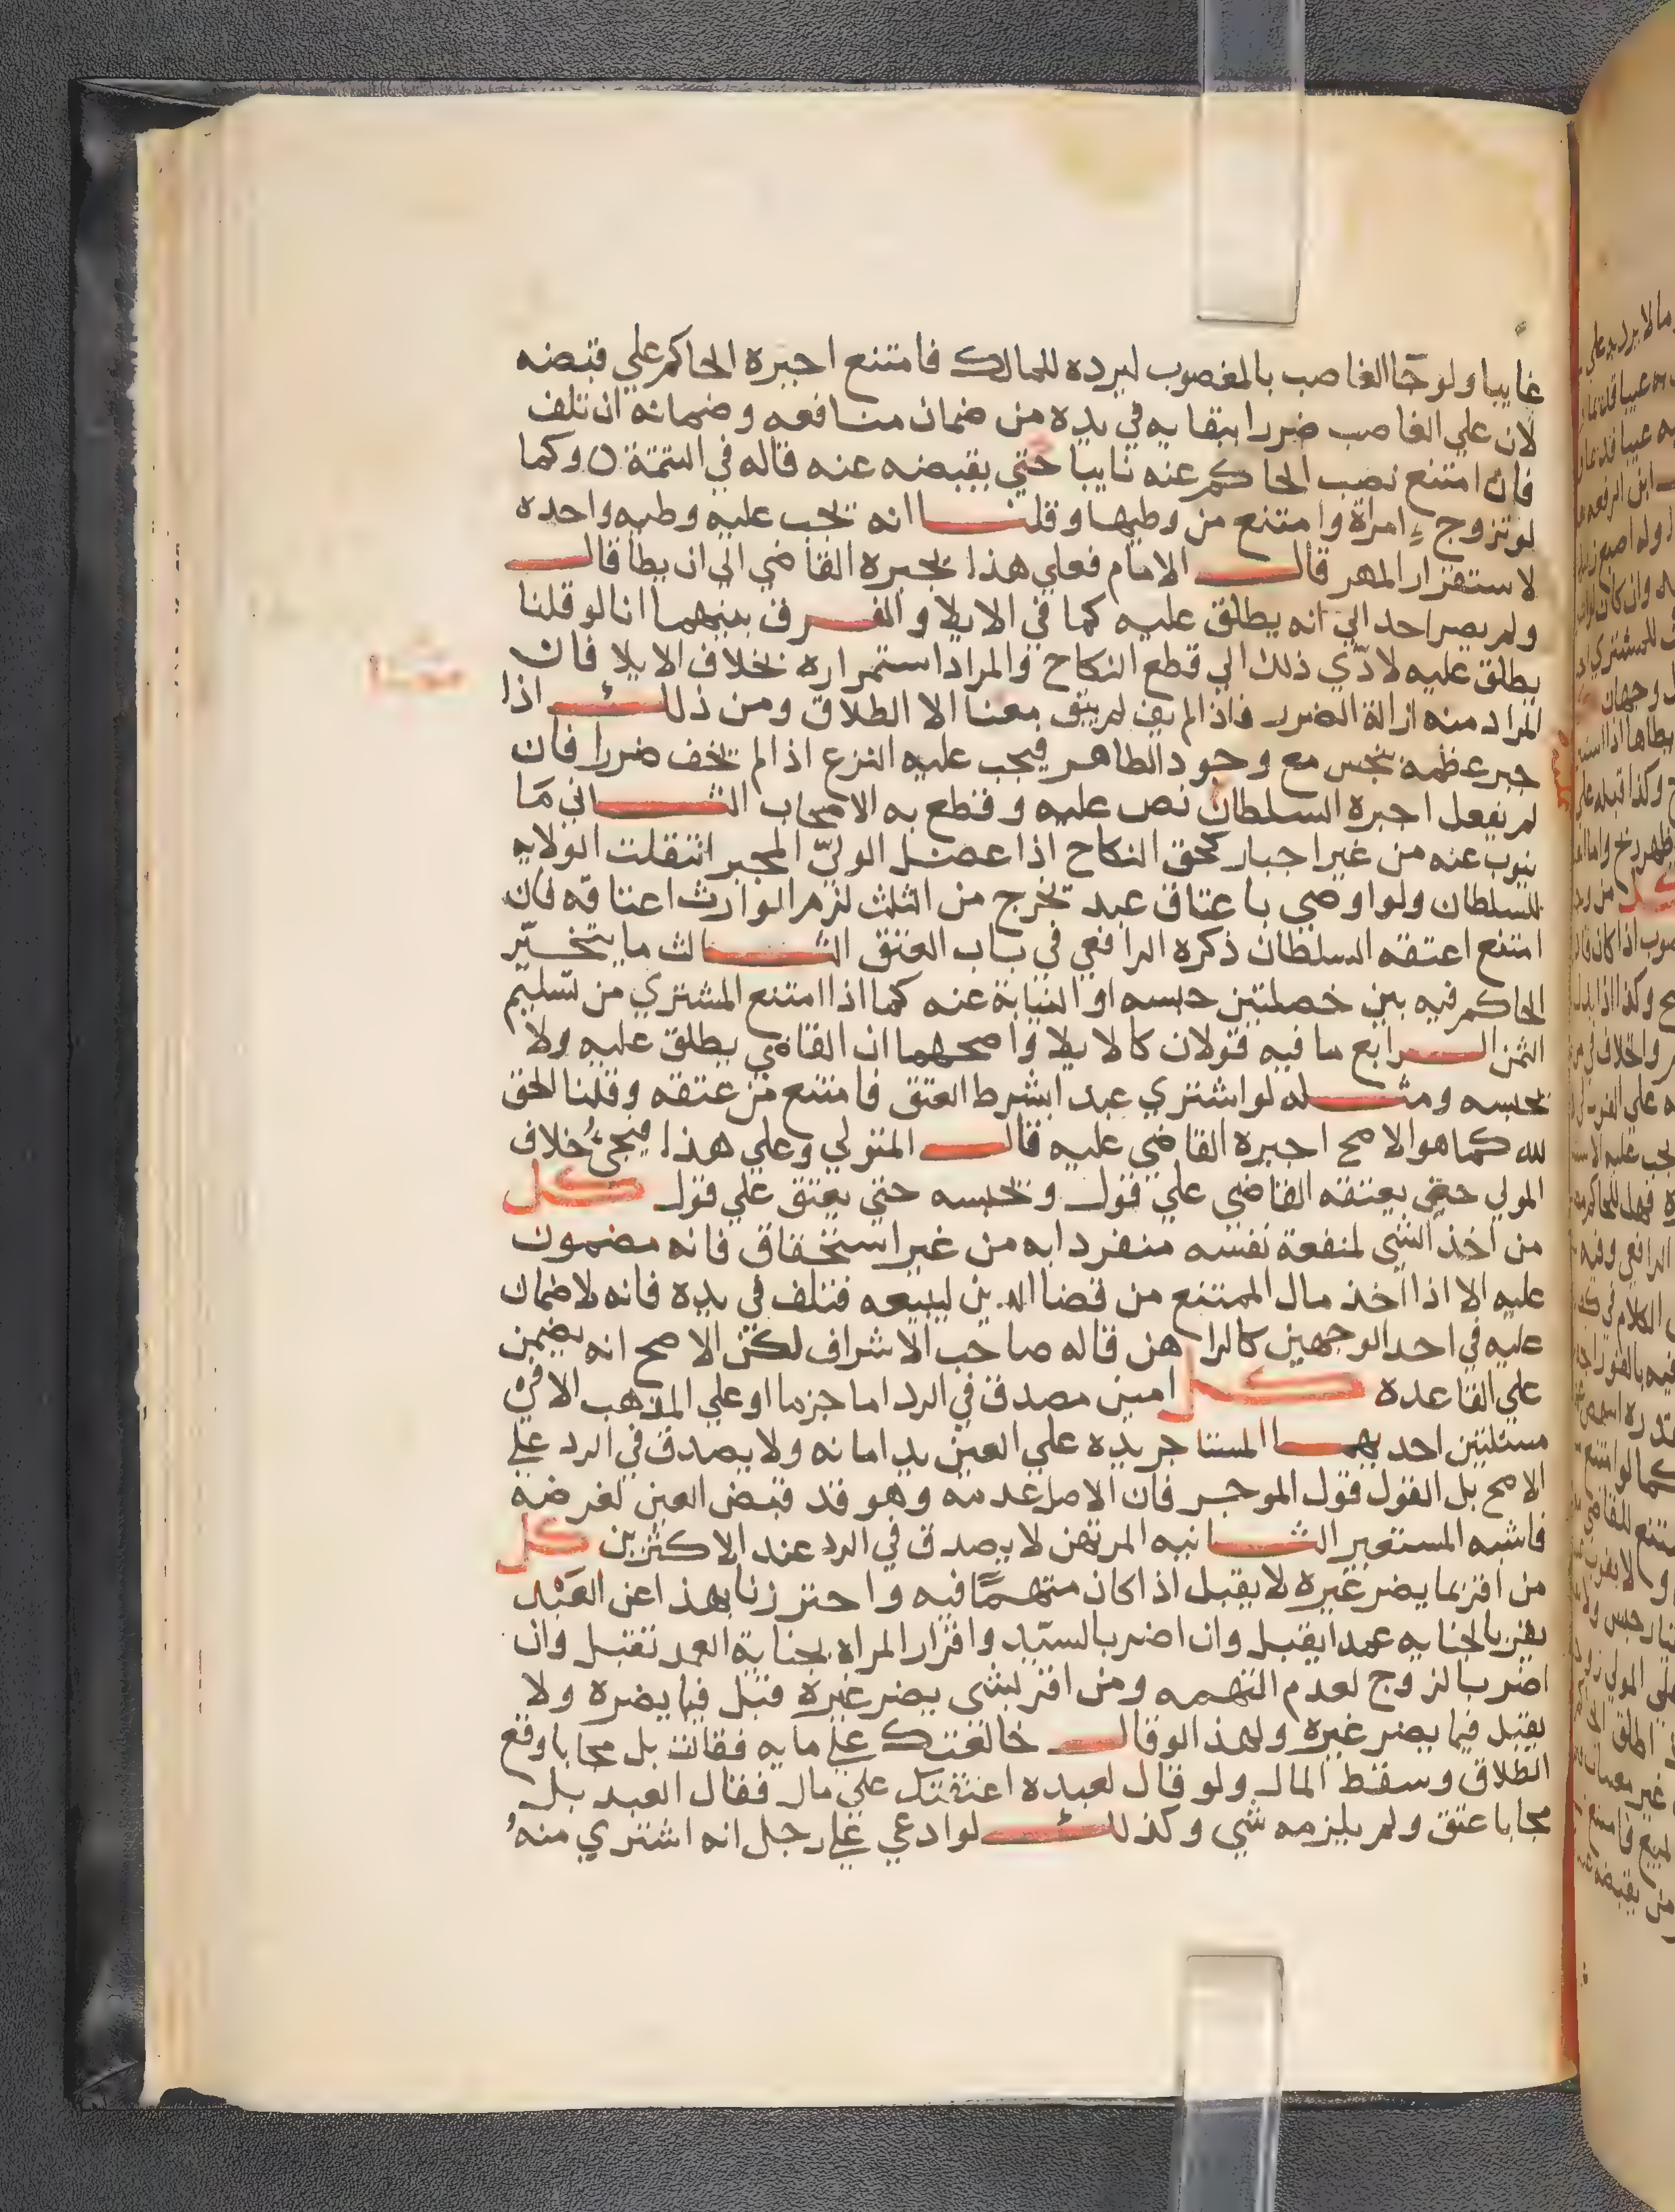 غايبا ولو جآ الغاصب بالمغصوب ليرده للمالك فامتنع اجبره الحاكم علي قبضه
لان علي الغاصب ضررا ببقايه في يده من ضمان منافعه وضمانه ان تلف
فان امتنع نصب الحاكم عنه نايبا حتي يقبضه عنه قاله في التتمة ن وكما
لو تزوج امراة وامتنع من وطيها وقلنا انه يجب عليه وطيه واحده
لاستقرار المهر قال الامام فعلي هذا يجبره القاضي الي ان يطا قال
ولم يصر احد الي انه يطلق عليه كما في الايلا والفرق بينهما انا لو قلنا
يطلق عليه لادّي ذلك الي قطع النكاح والمراد استمراره بخلاف الايلا فان
المراد منه ازالة الضرر فاذا لم يف لم يبق معنا الا الطلاق ومن ذلك اذا
جبر عظمه بنجس مع وجود الطاهر فيجب عليه النزع اذا لم يخف ضررا فان
لم يفعل اجبره السلطان نص عليه وقطع به الاصحاب الثاني مَا
ينوب عنه من غير اجبار كحق النكاح اذا عضل الوليّ المجبر انتقلت الولايه
للسلطان ولو اوصي باعتاق عبد يخرج من الثلث لزم الوارث اعتاقه فان
امتنع اعتقه السلطان ذكره الرافعي في باب العتق الثالث ما يتخيّر
الحاكم فيه بين خصلتين حبسه او النيابة عنه كما اذا امتنع المشتري من تسليم
الثمن الرابع ما فيه قولان كالايلا واصحهما ان القاضي يطلق عليه ولا
يحبسه ومثله لو اشتري عبدا بشرط العتق فامتنع من عتقه وقلنا الحق
لله كما هو الاصح اجبره القاضي عليه قال المتولي وعلي هذا فيجئُ خلاف
المولي حتي يعتقه القاضي علي قول ويحبسه حتي يعتق علي قول كل
من اخذ الشي لمنفعة نفسه منفردا به من غير استحقاق فانه مضمون
عليه الا اذا اخذ مال الممتنع من قضا الدين ليبيعه فتلف في يده فانه لا ضمان
عليه في احد الوجهين كالراهن قاله صاحب الاشراف لكن الاصح انه يضمن
علي القاعده كل امين مصدق في الرد اما جزما او علي المذهب الا في
مسئلتين احديهما المستاجر يده علي العين يد امانه ولا يصدق في الرد علي
الاصح بل القول قول الموجر فان الاصل عدمه وهو قد قبض العين لغرضه
فاشبه المستعير الثانيه المرتهن لا يصدق في الرد عند الاكثرين كل
من اقر بما يضر غيره لا يقبل اذا كان متهمًّا فيه واحترزنا بهذا عن العَبْد
يقر بالجنايه عمدا يقبل وان اضر بالسيّد واقرار المراه بجناية العمد تقبل وان
اضر بالزوج لعدم التهمه ومن اقر بشي يضر غيره قبل فيما يضره ولا
يقبل فيما يضر غيره ولهذا لو قال خالعتك علي مايه فقالت بل مجانا وقع
الطلاق وسقط المال ولو قال لعبده اعتقتك علي مال فقال العبد بل
مجانا عتق ولم يلزمه شي وكذلك لو ادعي علي رجل انه اشتري منهُ